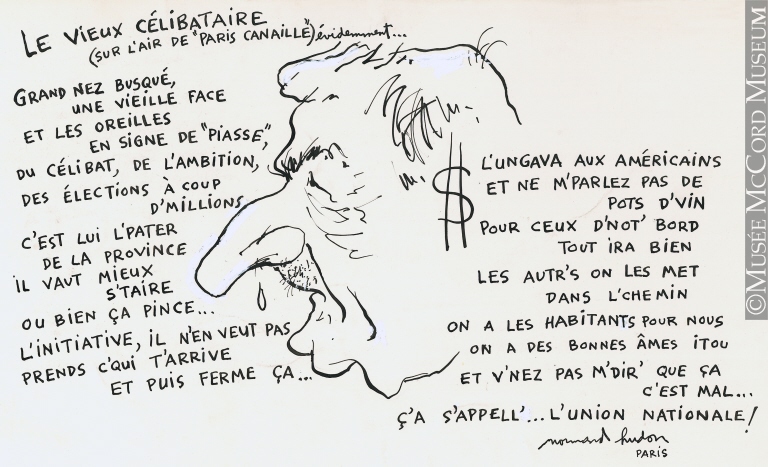 LE VIEUX CÉLIBATAIRE
(SUR L'AIR DE "PARIS CANAILLE") évidemment...
GRAND NEZ BUSQUÉ,
UNE VIEILLE FACE
ET LES OREILLES
EN SIGNE DE "PIASSE",
DU CÉLIBAT, DE L'AMBITION,
DES ÉLECTIONS À COUP
D'MILLIONS
C'EST LUI L'PATER
DE LA PROVINCE
IL VAUT MIEUX
S'TAIRE
OU BIEN ÇA PINCE...
L'INITIATIVE, IL N'EN VEUT PAS
PRENDS C'QUI T'ARRIVE
ET PUIS FERME ÇA...
$
L'UNGAVA AUX AMÉRICAINS
ET NE M'PARLEZ PAS DE
POTS D'VIN
POUR CEUX D'NOT' BORD
TOUT IRA BIEN
LES AUTR'S ON LES MET
DANS L'CHEMIN
ON A LES HABITANTS POUR NOUS
ON A DES BONNES ÂMES ITOU
ET V'NEZ PAS M'DIR' QUE ÇA
C'EST MAL...
Ç'A S'APPELL'... L'UNION NATIONALE!
normand hudon
PARIS
©MUSÉE MCCORD MUSEUM